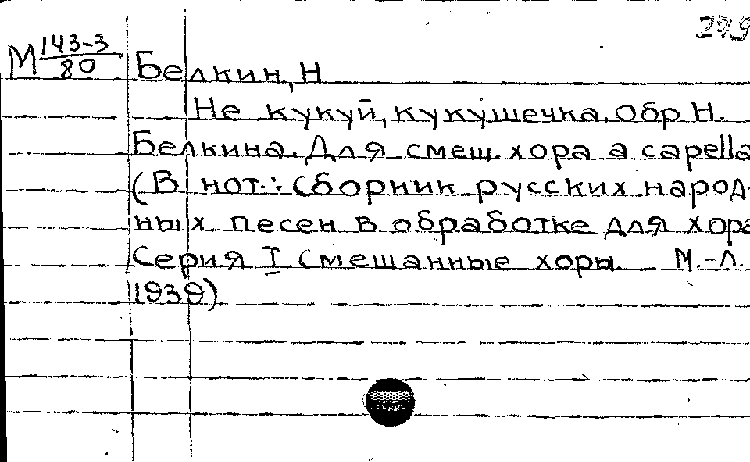 М 143-3/80 Белкин, Н
Не кукуй, кукушечка. Обр. Н.
Белкина. Для смеш. хора a capella
(В нот.: Сборник русских народ-
ных песен в обработке для хора
Серия I Смешанные хоры. М.-Л.
1939)